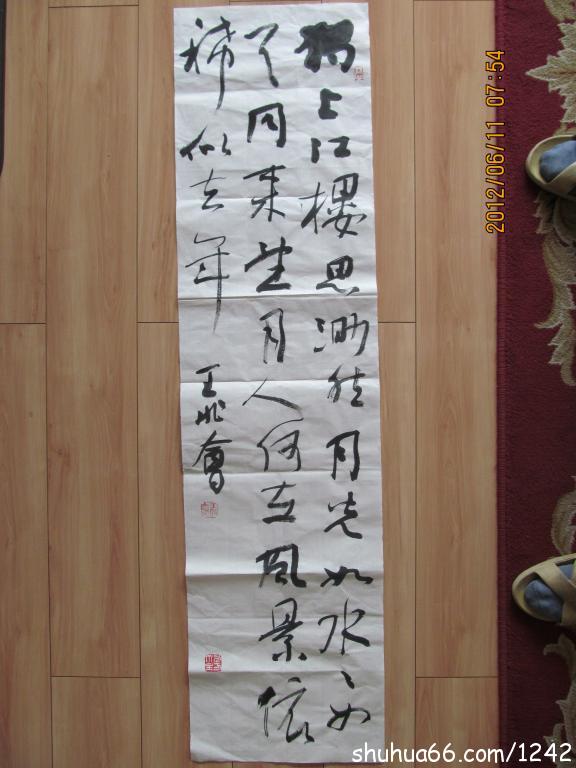 獨上江樓思渺然月光如水々如
天同来望月人何在風景依
稀似去年 王兆會
2012/06/11 07:54
shuhua66.com/1242